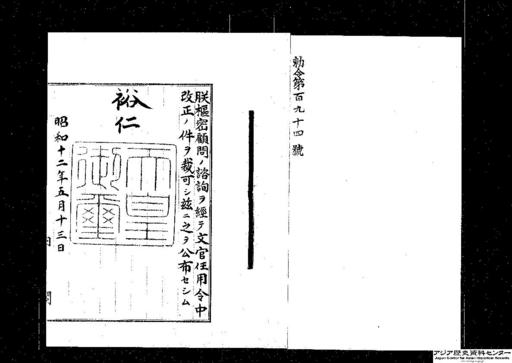 勅令第百九十四號
朕樞密顧問ノ諮詢ヲ經テ文官任用令中
改正ノ件ヲ裁可シ茲ニ之ヲ公布セシム
裕仁
天皇御璽
昭和十二年五月十三日
内閣
アジア歴史資料センター
Japan Center for Asian Historical Records